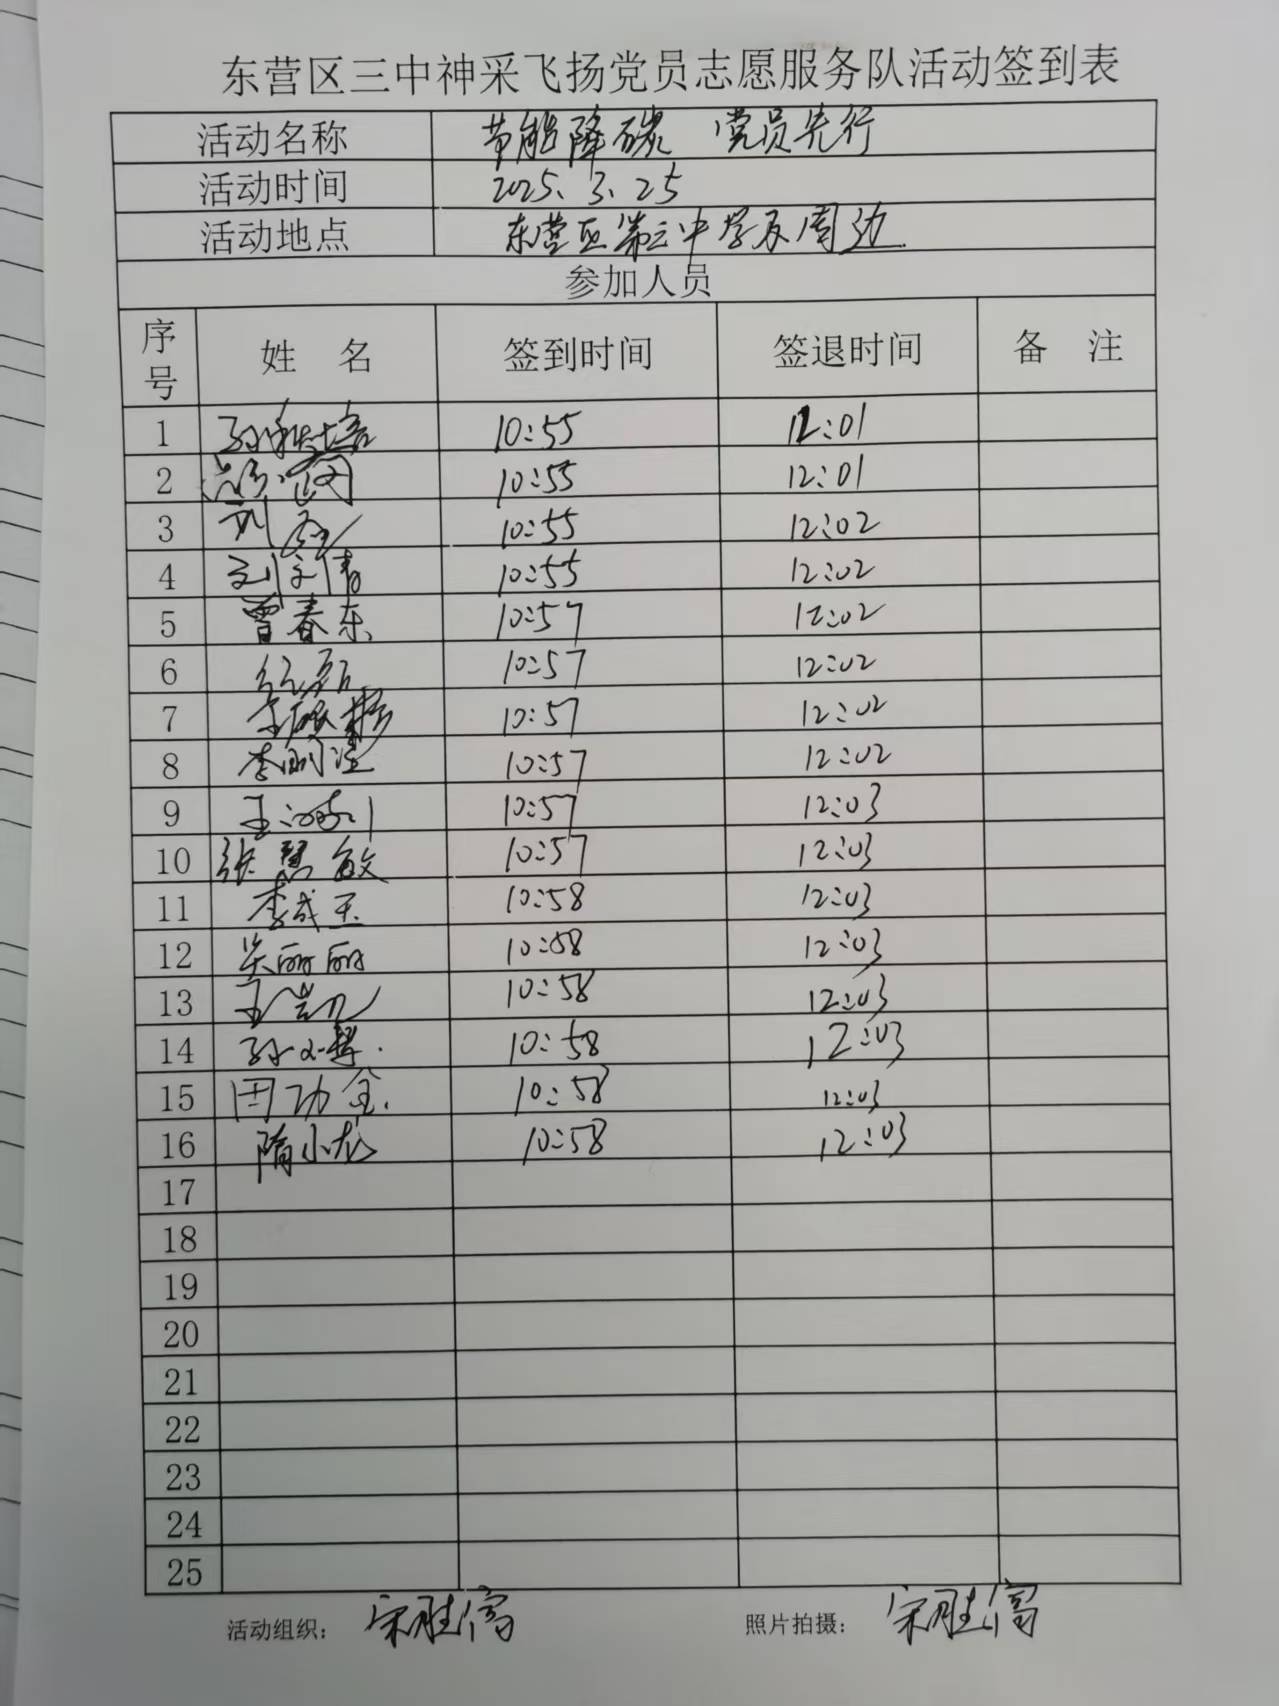 东营区三中神采飞扬党员志愿服务队活动签到表
活动名称 节能降碳 党员先行
活动时间 2025.3.25
活动地点 东营区第三中学及周边
参加人员
序号 姓名 签到时间 签退时间 备注
1 10:55 12:01
2 10:55 12:01
3 10:55 12:02
4 刘文倩 10:55 12:02
5 曾春东 10:57 12:02
6 10:57 12:02
7 10:57 12:02
8 10:57 12:02
9 10:57 12:03
10 张慧敏 10:57 12:03
11 李成玉 10:58 12:03
12 吴丽丽 10:58 12:03
13 10:58 12:03
14 10:58 12:03
15 田功全 10:58 12:03
16 隋小龙 10:58 12:03
17
18
19
20
21
22
23
24
25
活动组织: 宋胜 照片拍摄: 宋胜